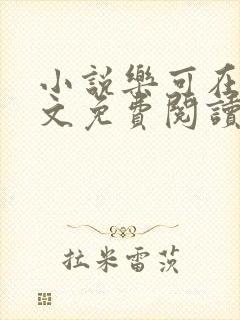 小說樂可在
文免費閱讀
拉米雷茨